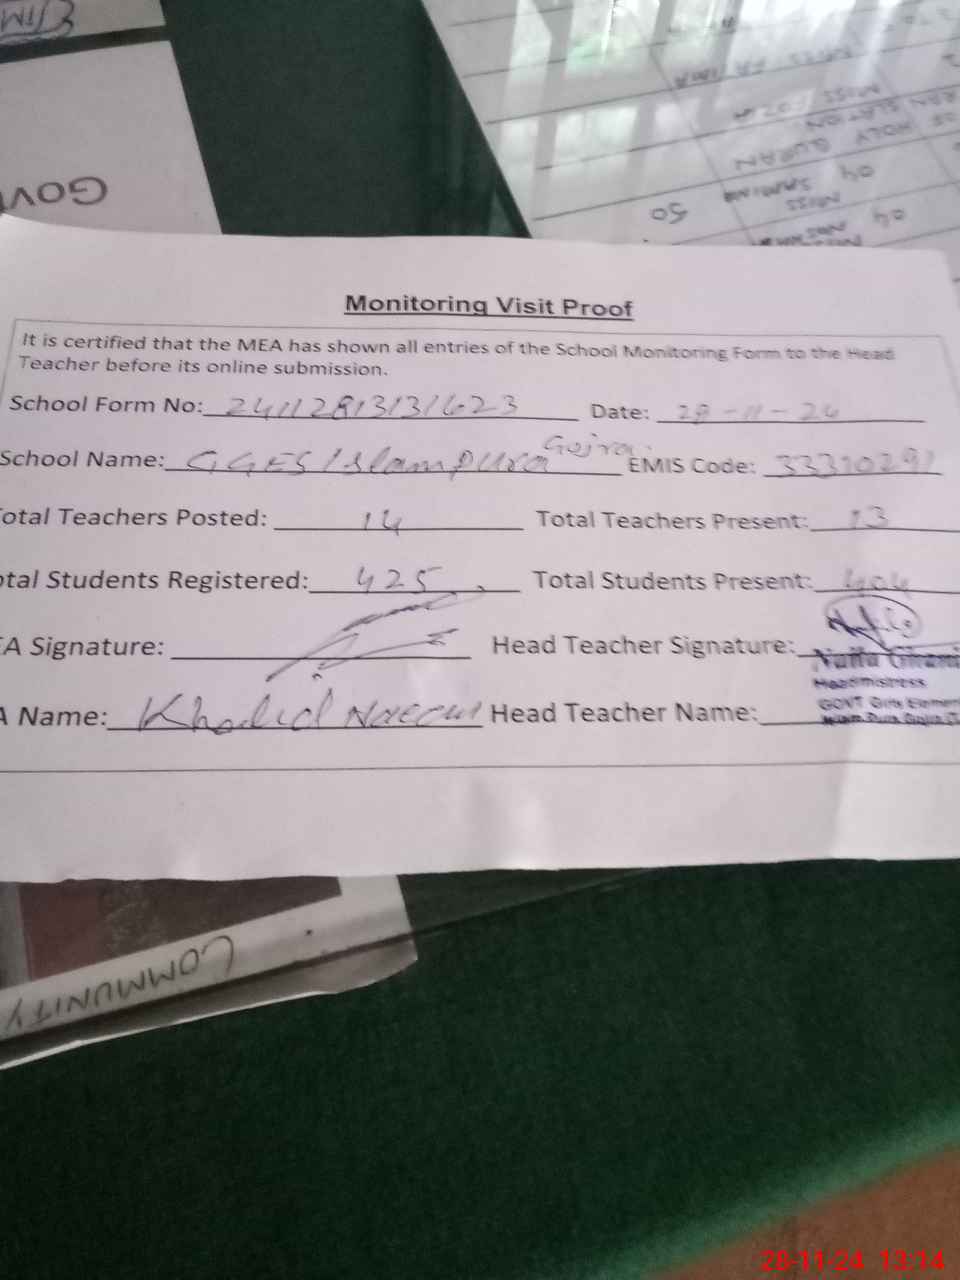 GOV
COMMUNITY
MISS
HOLY QURAN
04
MISS
50
04
Monitoring Visit Proof
It is certified that the MEA has shown all entries of the School Monitoring Form to the Head
Teacher before its online submission.
School Form No: Date: 28-11-24
School Name: GGES Islampura Gojra EMIS Code: 33310291
otal Teachers Posted: 14 Total Teachers Present: 13
otal Students Registered: 425 Total Students Present: 404
EA Signature: Head Teacher Signature:
Ghani
Headmistress
A Name: Khalid Naeem Head Teacher Name:
GOVT Girls Elemen
Pura Gojra
28-11-24 13:14